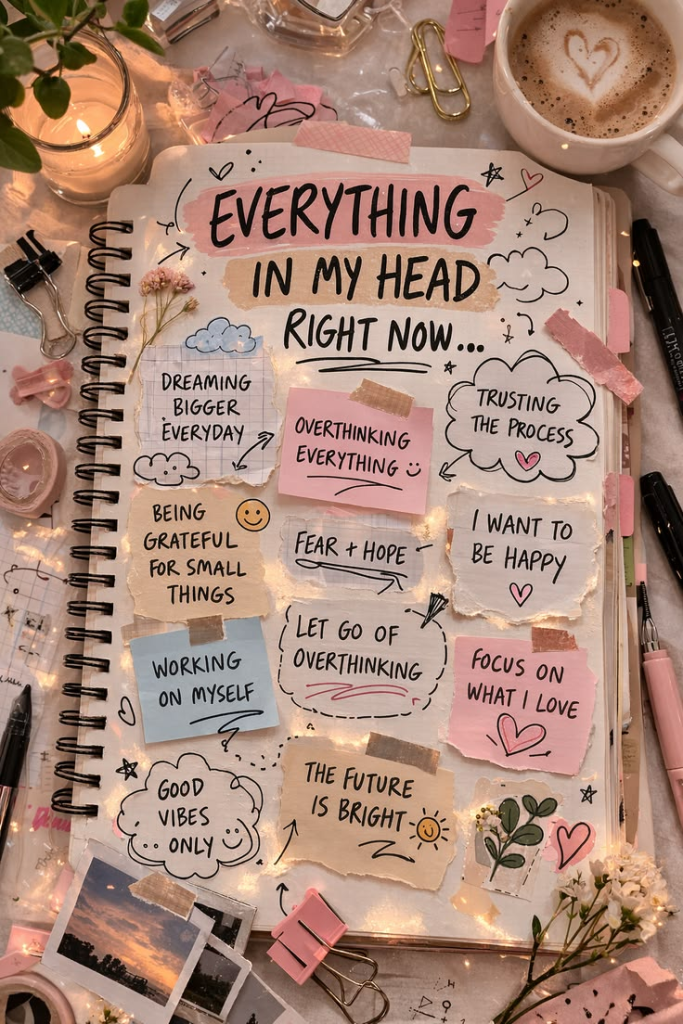 EVERYTHING
IN MY HEAD
RIGHT NOW...
DREAMING
BIGGER
EVERYDAY
OVERTHINKING
EVERYTHING
TRUSTING
THE PROCESS
BEING
GRATEFUL
FOR SMALL
THINGS
FEAR + HOPE
I WANT TO
BE HAPPY
WORKING
ON MYSELF
LET GO OF
OVERTHINKING
FOCUS ON
WHAT I LOVE
GOOD
VIBES
ONLY
THE FUTURE
IS BRIGHT